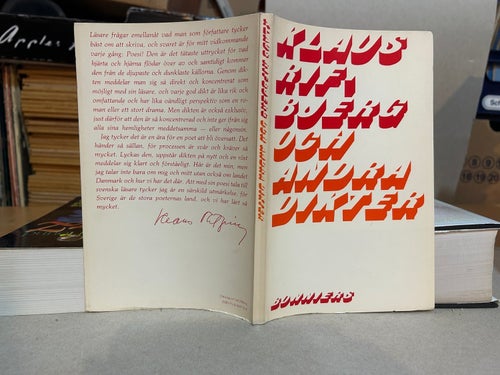 Läsare frågar emellanåt vad man som författare tycker
bäst om att skriva, och svaret är för mitt vidkommande
varje gång: Poesi! Den är det tätaste uttrycket för vad
hjärta och hjärna flödar över av och samtidigt kommer
den från de djupaste och dunklaste källorna. Genom dik-
ten meddelar man sig så direkt och koncentrerat som
möjligt med sin läsare, och varje god dikt är lika rik och
omfattande och har lika oändligt perspektiv som en ro-
man eller ett stort drama. Men dikten är också exklusiv,
just därför att den är så koncentrerad och inte ger från sig
alla sina hemligheter meddetsamma — eller någonsin.
Jag tycker det är en ära för en poet att bli översatt. Det
händer så sällan, för processen är svår och kräver så
mycket. Lyckas den, uppstår dikten på nytt och en växt
meddelar sig klart och förståeligt. Här är det min, men
jag talar inte bara om mig och mitt utan också om landet
Danmark och hur vi har det där. Att med sin poesi tala till
svenska läsare tycker jag är en särskild utmärkelse, för
Sverige är de stora poeternas land, och vi har läst så
mycket.
Klaus Rifbjerg
KLAUS
RIF,
BJERG
OCH
ANDRA
DIKTER
BONNIERS